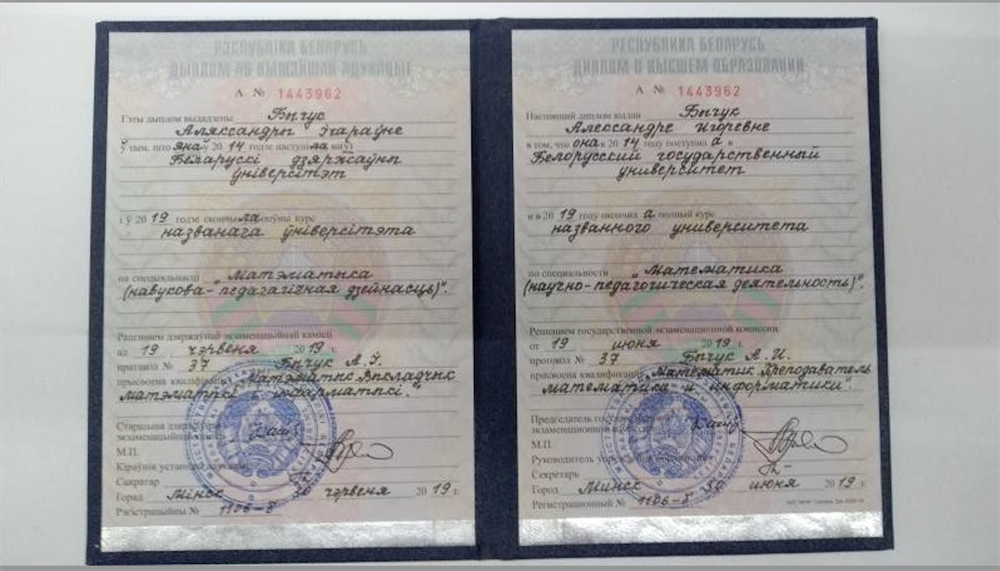 РЭСПУБЛІКА БЕЛАРУСЬ
ДЫПЛОМ АБ ВЫШЭЙШАЙ АДУКАЦЫІ
А № 1443962
Гэты дыплом выдадзены Бычук
Аляксандры Ігараўне
ў тым, што яна ў 2014 годзе наступіла ва ўў
Беларускі дзяржаўны
ўніверсітэт
і ў 2019 годзе скончыла поўны курс
названага ўніверсітэта
па спецыяльнасці "Матэматыка
(навукова-педагагічная дзейнасць)".
Рашэннем дзяржаўнай экзаменацыйнай камісіі
ад 19 чэрвеня 2019 г.
пратакол № 37 Бычук А.І.
прысвоена кваліфікацыя "Матэматык. Выкладчык
матэматыкі і інфарматыкі".
Старшыня дзяржаўнай
экзаменацыйнай
М.П.
Кіраўнік установы адукацыі
Сакратар
Горад Мінск 30 чэрвеня 2019 г.
Рэгістрацыйны № 1106-б
РЕСПУБЛИКА БЕЛАРУСЬ
ДИПЛОМ О ВЫСШЕМ ОБРАЗОВАНИИ
А № 1443962
Настоящий диплом выдан Бычук
Александре Игоревне
в том, что она в 2014 году поступила в
Белорусский государственный
университет
и в 2019 году окончила полный курс
названного университета
по специальности "Математика
(научно-педагогическая деятельность)".
Решением государственной экзаменационной комиссии
от 19 июня 2019 г.
протокол № 37 Бычук А.И.
присвоена квалификация "Математик. Преподаватель
математики и информатики".
Председатель государственной
экзаменационной
М.П.
Руководитель учреждения
Секретарь
Город Минск 30 июня 2019 г.
Регистрационный № 1106-б